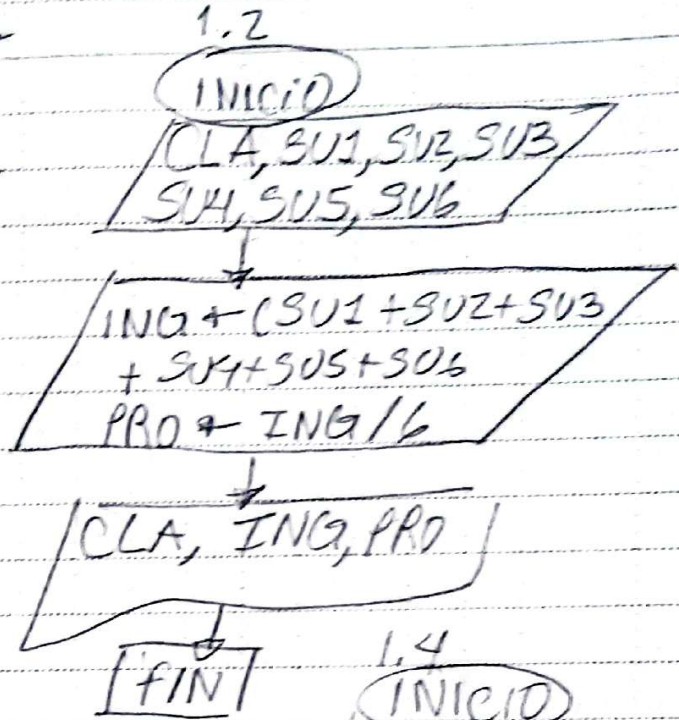 1.2
INICIO
CLA, SU1, SU2, SU3
SU4, SU5, SU6
ING ← (SU1 + SU2 + SU3
+ SU4 + SU5 + SU6
PRO ← ING / 6
CLA, ING, PRO
FIN
1.4
INICIO